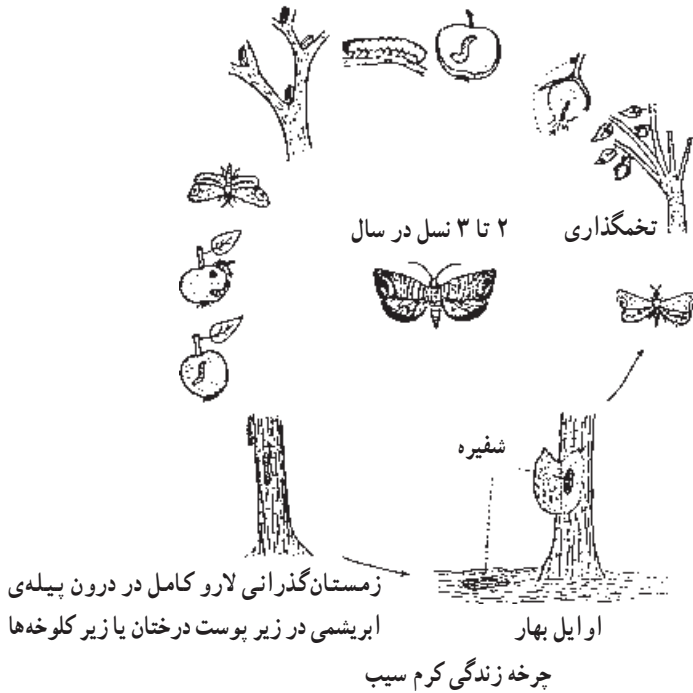 تخمگذاری
۲ تا ۳ نسل در سال
شفیره
زمستان‌گذرانی لارو کامل در درون پیله‌ی
ابریشمی در زیر پوست درختان یا زیر کلوخه‌ها
اوایل بهار
چرخه زندگی کرم سیب